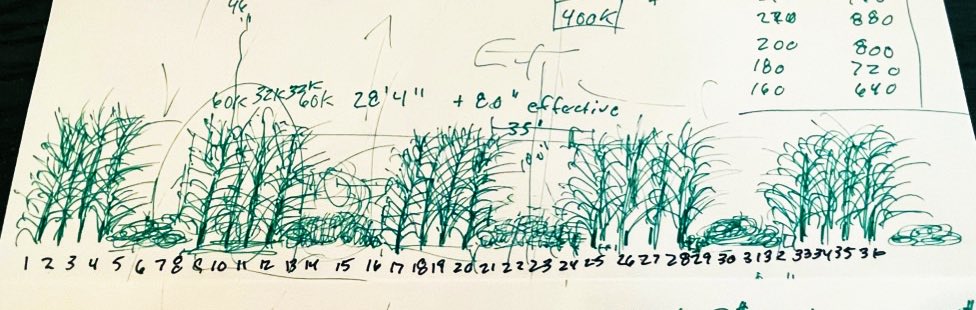 46"
400K
220 880
200 800
180 720
160 640
60K 32K 32K 60K 28'4" + 80" effective
35"
100"
1 2 3 4 5 6 7 8 9 10 11 12 13 14 15 16 17 18 19 20 21 22 23 24 25 26 27 28 29 30 31 32 33 34 35 36